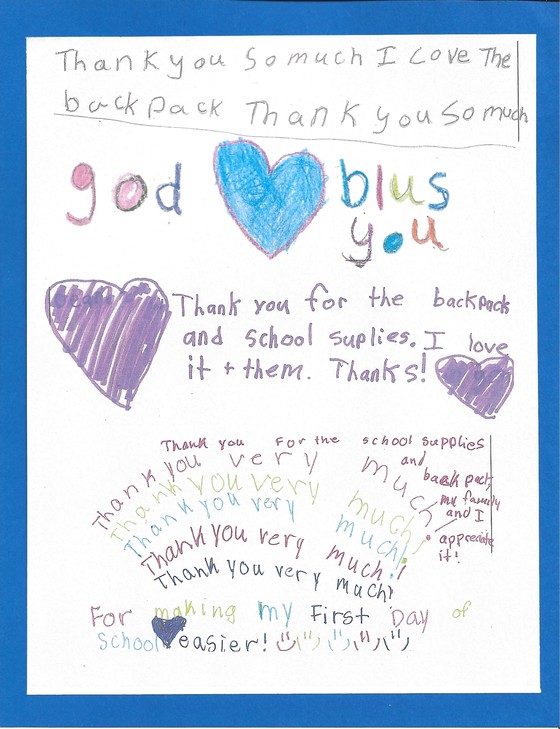 Thank you so much I Love The
backpack Thank you so much
god blus
you
Thank you for the backpack
and school suplies. I love
it + them. Thanks!
Thank you For the school supplies
and
back pack,
my family
and I
appreciate
it!
Thank you very much!
Thank you very much!
Thank you very much!
Thank you very much!
Thank you very much!
For making my First Day of
School easier!